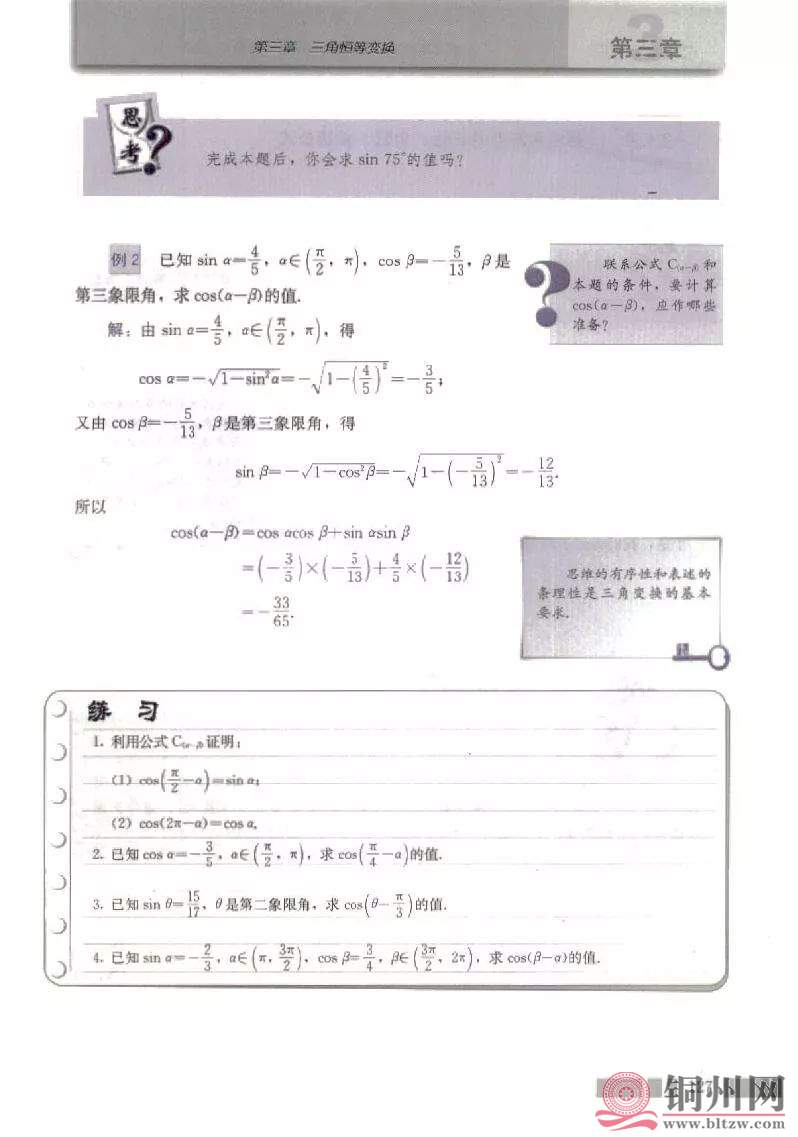 第三章 三角恒等变换
第三章
思考?
完成本题后,你会求 sin 75°的值吗?
例2 已知 sin α=4/5,α∈(π/2,π),cos β=-5/13,β是
第三象限角,求 cos(α-β)的值.
联系公式 C(α-β) 和
本题的条件,要计算
cos(α-β),应作哪些
准备?
解:由 sin α=4/5,α∈(π/2,π),得
cos α=-√(1-sin²α)=-√(1-(4/5)²)=-3/5;
又由 cos β=-5/13,β是第三象限角,得
sin β=-√(1-cos²β)=-√(1-(-5/13)²)=-12/13.
所以
cos(α-β)=cos αcos β+sin αsin β
=(-3/5)×(-5/13)+4/5×(-12/13)
=-33/65.
思维的有序性和表述的
条理性是三角变换的基本
要求.
练 习
1. 利用公式 C(α-β)证明:
(1) cos(π/2-α)=sin α;
(2) cos(2π-α)=cos α.
2. 已知 cos α=-3/5,α∈(π/2,π),求 cos(π/4-α)的值.
3. 已知 sin θ=15/17,θ是第二象限角,求 cos(θ-π/3)的值.
4. 已知 sin α=-2/3,α∈(π,3π/2),cos β=3/4,β∈(3π/2,2π),求 cos(β-α)的值.
127
铜州网
www.bltzw.com